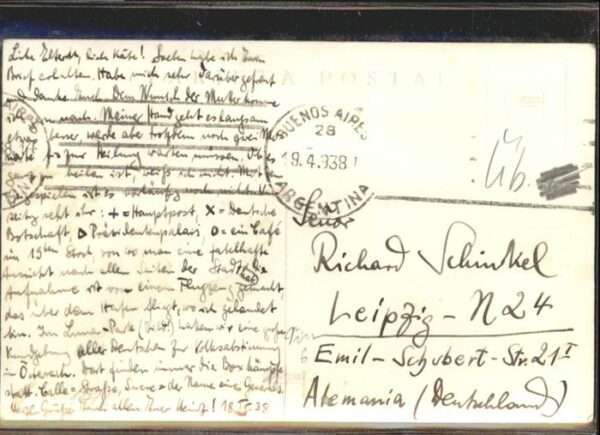 Liebe Eltern, liebe Käte! Soeben habe ich Euren
Brief erhalten. Habe mich sehr darüber gefreut
und danke Euch. Dem Wunsch der Mutter komme
ich nach. Meiner Hand geht es langsam
etwas besser, werde aber trotzdem noch zwei Mo-
nate bis zur Heilung warten müssen. Ob es
ganz zu heilen ist, weiß ich nicht. Mit
ist es vorläufig noch nicht.
seitig seht ihr: + = Hauptpost, X = Deutsche
Botschaft, Präsidentenpalais, o = ein Café
im 19ten Stock, von wo man eine fabelhafte
Aussicht nach allen Seiten der Stadt hat. Die
Aufnahme ist von einem Flugzeug gemacht,
das über dem Hafen fliegt, wo ich gelandet
bin. Im Luna-Park (Bild) haben wir eine
Kundgebung aller Deutschen zur Volksabstimmung
in Österreich. Dort finden immer die Boxkämpfe
statt. Calle = Straße, Sucre = der Name eines Generals
Grüße Euch allen Euer Heinz! 18.IV.38
POSTAL
BUENOS AIRES
28
19.4.938
ARGENTINA
Üb.
Señor
Richard Schinkel
Leipzig - N 24
Emil-Schubert-Str. 21 I
Alemania (Deutschland)